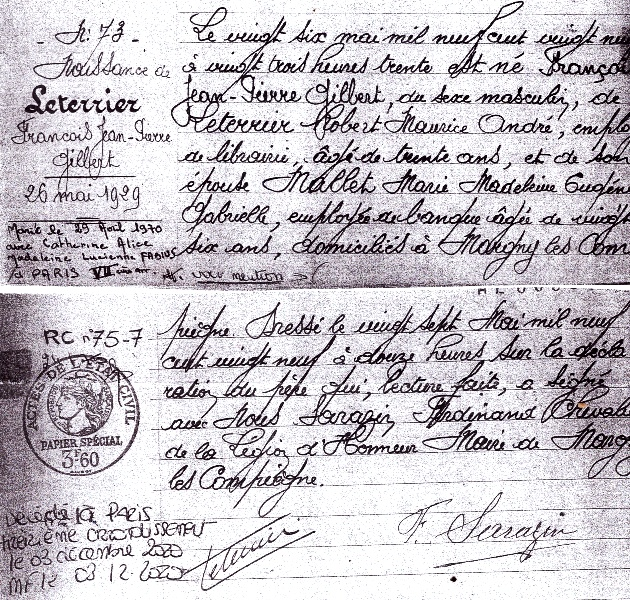 N: 73
Naissance de
Leterrier
François Jean-Pierre
Gilbert
26 mai 1929
Marié le 29 Août 1970
avec Catherine Alice
Madeleine Lucienne FABIUS
à PARIS VII
voir mention
Le vingt six mai mil neuf cent vingt neu
à vingt trois heures trente est né Françoi
Jean-Pierre Gilbert, du sexe masculin, de
Leterrier Robert Maurice André, emplo
de librairie, âgé de trente ans, et de son
épouse Mallet Marie Madeleine Eugén
Gabrielle, employée de banque âgée de vingt
six ans, domiciliés à Margny les Com
RC n°75-7
ACTES DE L'ETAT CIVIL
PAPIER SPÉCIAL
3F60
Décédé à PARIS
treizième arrondissement
le 03 décembre 2020
03.12.2020
piègne. Dressé le vingt sept Mai mil neuf
cent vingt neuf à douze heures sur la décla
ration du père qui, lecture faite, a signé
avec Nous Sarazin Ferdinand Cheval
de la Légion d'Honneur Maire de Marg
les Compiègne.
F. Sarazin